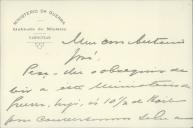 MINISTERIO DA GUERRA
Gabinete do Ministro
Meu caro Antonio
José.
Peço-lhe o obsequio de
vir a este Ministerio da
Guerra, hoje, ás 10 1/2 da
para conversarmos sobre